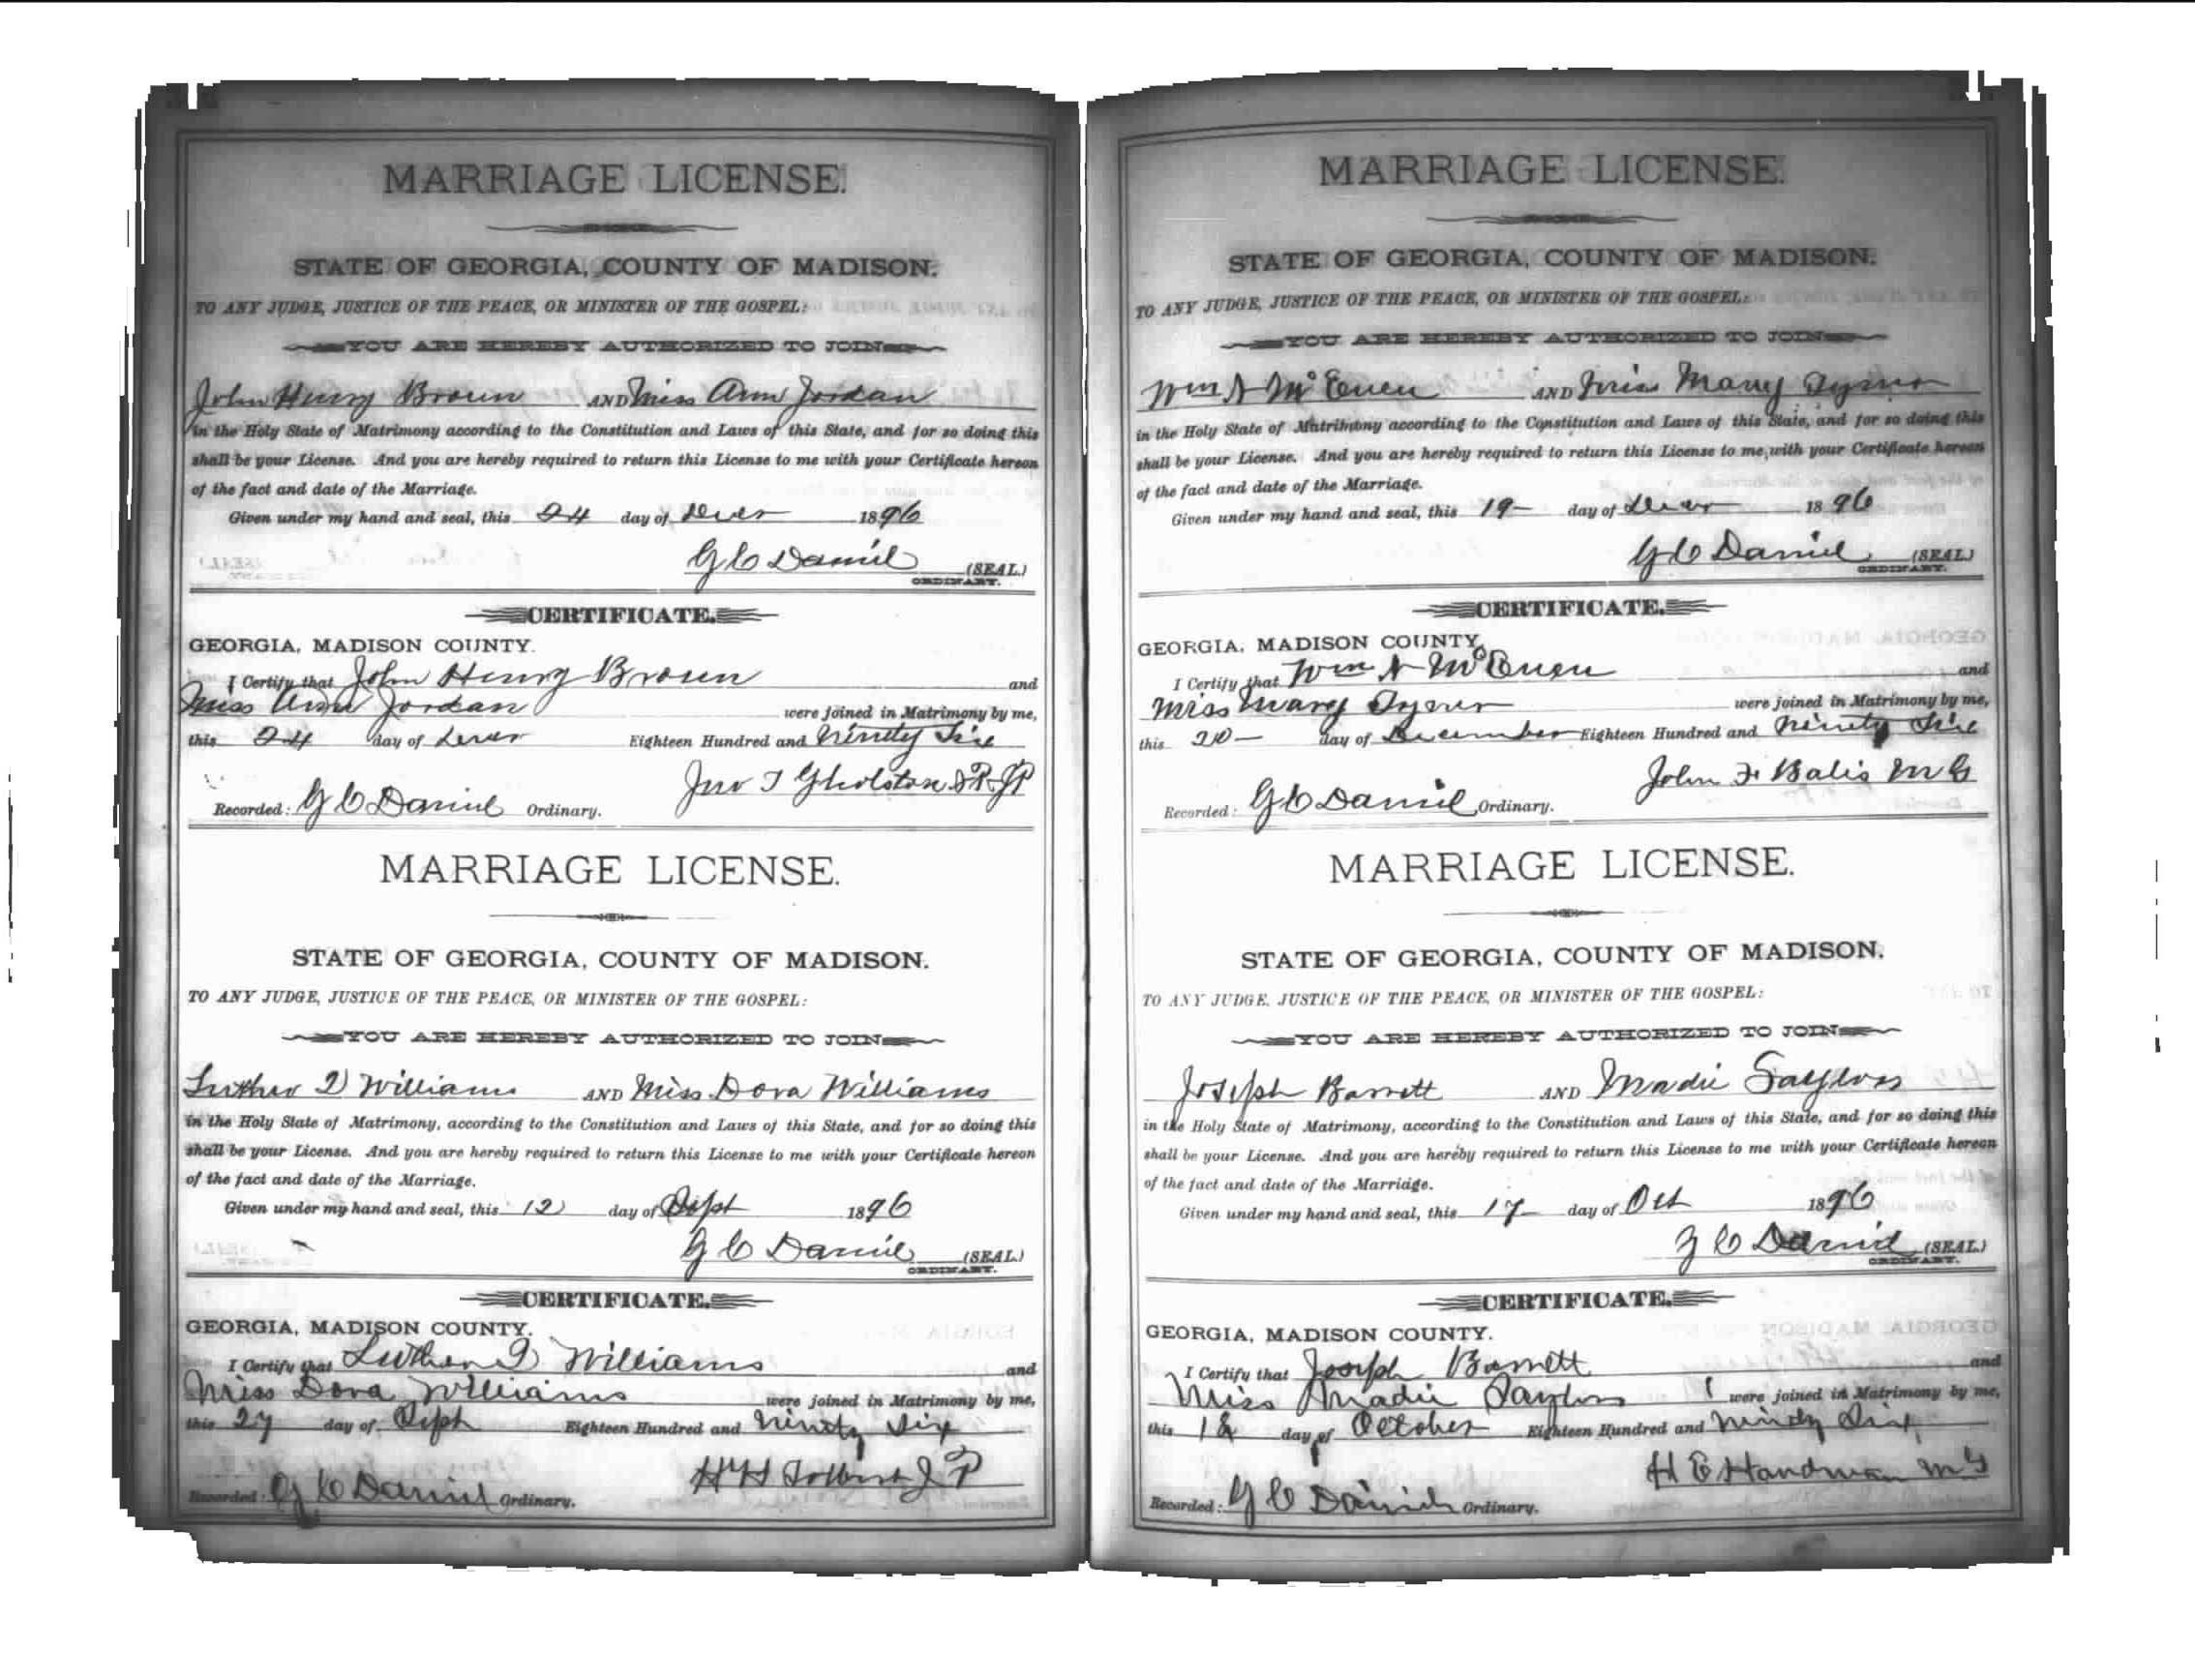 MARRIAGE LICENSE.
STATE OF GEORGIA, COUNTY OF MADISON.
TO ANY JUDGE, JUSTICE OF THE PEACE, OR MINISTER OF THE GOSPEL:
YOU ARE HEREBY AUTHORIZED TO JOIN
John Henry Brown AND Miss Ann Jordan
in the Holy State of Matrimony according to the Constitution and Laws of this State, and for so doing this
shall be your License. And you are hereby required to return this License to me with your Certificate hereon
of the fact and date of the Marriage.
Given under my hand and seal, this 24 day of 1896
G C Daniel (SEAL.)
ORDINARY.
CERTIFICATE.
GEORGIA, MADISON COUNTY.
I Certify that John Henry Brown and
Miss Ann Jordan were joined in Matrimony by me,
this 24 day of Eighteen Hundred and Ninety Six
Jno T Gholston JP
Recorded: G C Daniel Ordinary.
MARRIAGE LICENSE.
STATE OF GEORGIA, COUNTY OF MADISON.
TO ANY JUDGE, JUSTICE OF THE PEACE, OR MINISTER OF THE GOSPEL:
YOU ARE HEREBY AUTHORIZED TO JOIN
Luther Williams AND Miss Dora Williams
in the Holy State of Matrimony, according to the Constitution and Laws of this State, and for so doing this
shall be your License. And you are hereby required to return this License to me with your Certificate hereon
of the fact and date of the Marriage.
Given under my hand and seal, this 12 day of Sept 1896
G C Daniel (SEAL.)
ORDINARY.
CERTIFICATE.
GEORGIA, MADISON COUNTY.
I Certify that Luther Williams and
Miss Dora Williams were joined in Matrimony by me,
this 27 day of Sept Eighteen Hundred and Ninety Six
H H Tolbert J P
Recorded: G C Daniel Ordinary.
MARRIAGE LICENSE.
STATE OF GEORGIA, COUNTY OF MADISON.
TO ANY JUDGE, JUSTICE OF THE PEACE, OR MINISTER OF THE GOSPEL:
YOU ARE HEREBY AUTHORIZED TO JOIN
Wm A McEuen AND Miss Mary Tyner
in the Holy State of Matrimony according to the Constitution and Laws of this State, and for so doing this
shall be your License. And you are hereby required to return this License to me with your Certificate hereon
of the fact and date of the Marriage.
Given under my hand and seal, this 19 day of 1896
G C Daniel (SEAL.)
ORDINARY.
CERTIFICATE.
GEORGIA, MADISON COUNTY.
I Certify that Wm A McEuen and
Miss Mary Tyner were joined in Matrimony by me,
this 20 day of December Eighteen Hundred and Ninety Six
John F M G
Recorded: G C Daniel Ordinary.
MARRIAGE LICENSE.
STATE OF GEORGIA, COUNTY OF MADISON.
TO ANY JUDGE, JUSTICE OF THE PEACE, OR MINISTER OF THE GOSPEL:
YOU ARE HEREBY AUTHORIZED TO JOIN
Joseph Barrett AND Madie Saylors
in the Holy State of Matrimony, according to the Constitution and Laws of this State, and for so doing this
shall be your License. And you are hereby required to return this License to me with your Certificate hereon
of the fact and date of the Marriage.
Given under my hand and seal, this 17 day of Oct 1896
G C Daniel (SEAL.)
ORDINARY.
CERTIFICATE.
GEORGIA, MADISON COUNTY.
I Certify that Joseph Barrett and
Miss Madie Saylors were joined in Matrimony by me,
this 18 day of October Eighteen Hundred and Ninety Six
H E M G
Recorded: G C Daniel Ordinary.